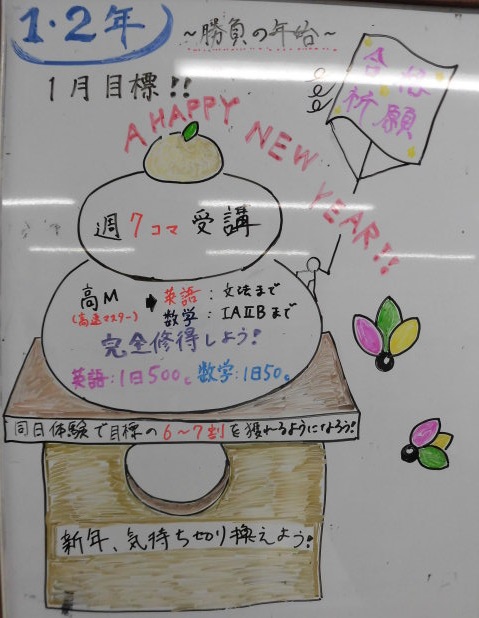 1・2年
~勝負の年始~
1月目標!!
合格
祈願
A HAPPY NEW YEAR!!
週7コマ 受講
高M → 英語:文法まで
(高速マスター) 数学:ⅠAⅡBまで
完全修得しよう!
英語:1日500c 数学:1日50c
同日体験で目標の6~7割を獲れるようになろう!
新年、気持ち切り換えよう!